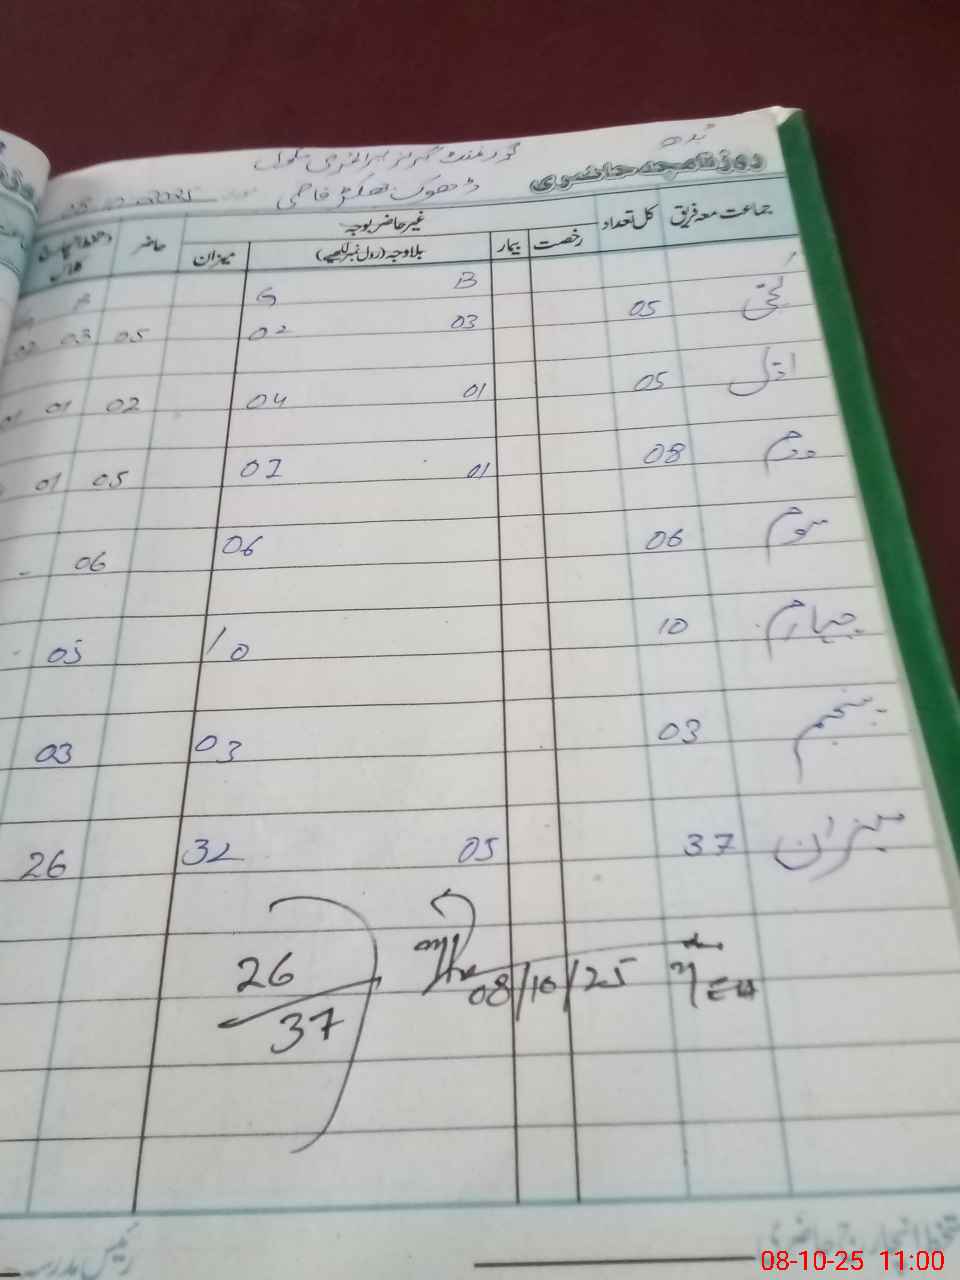 گورنمنٹ گرلز پرائمری سکول
روزنامچہ حاضری
ڈھوک
جماعت معہ فریق کل تعداد غیر حاضر بوجہ حاضر
رخصت بیمار بلاوجہ (رول نمبر لکھیے) میزان
B G
کچی 05 03 02 05 03
اول 05 01 04 02 01
دوم 08 01 07 05 01
سوم 06 06 06
چہارم 10 10 05
پنجم 03 03 03
میزان 37 05 32 26
26
37
08/10/25
رئیس مدرسہ
08-10-25 11:00